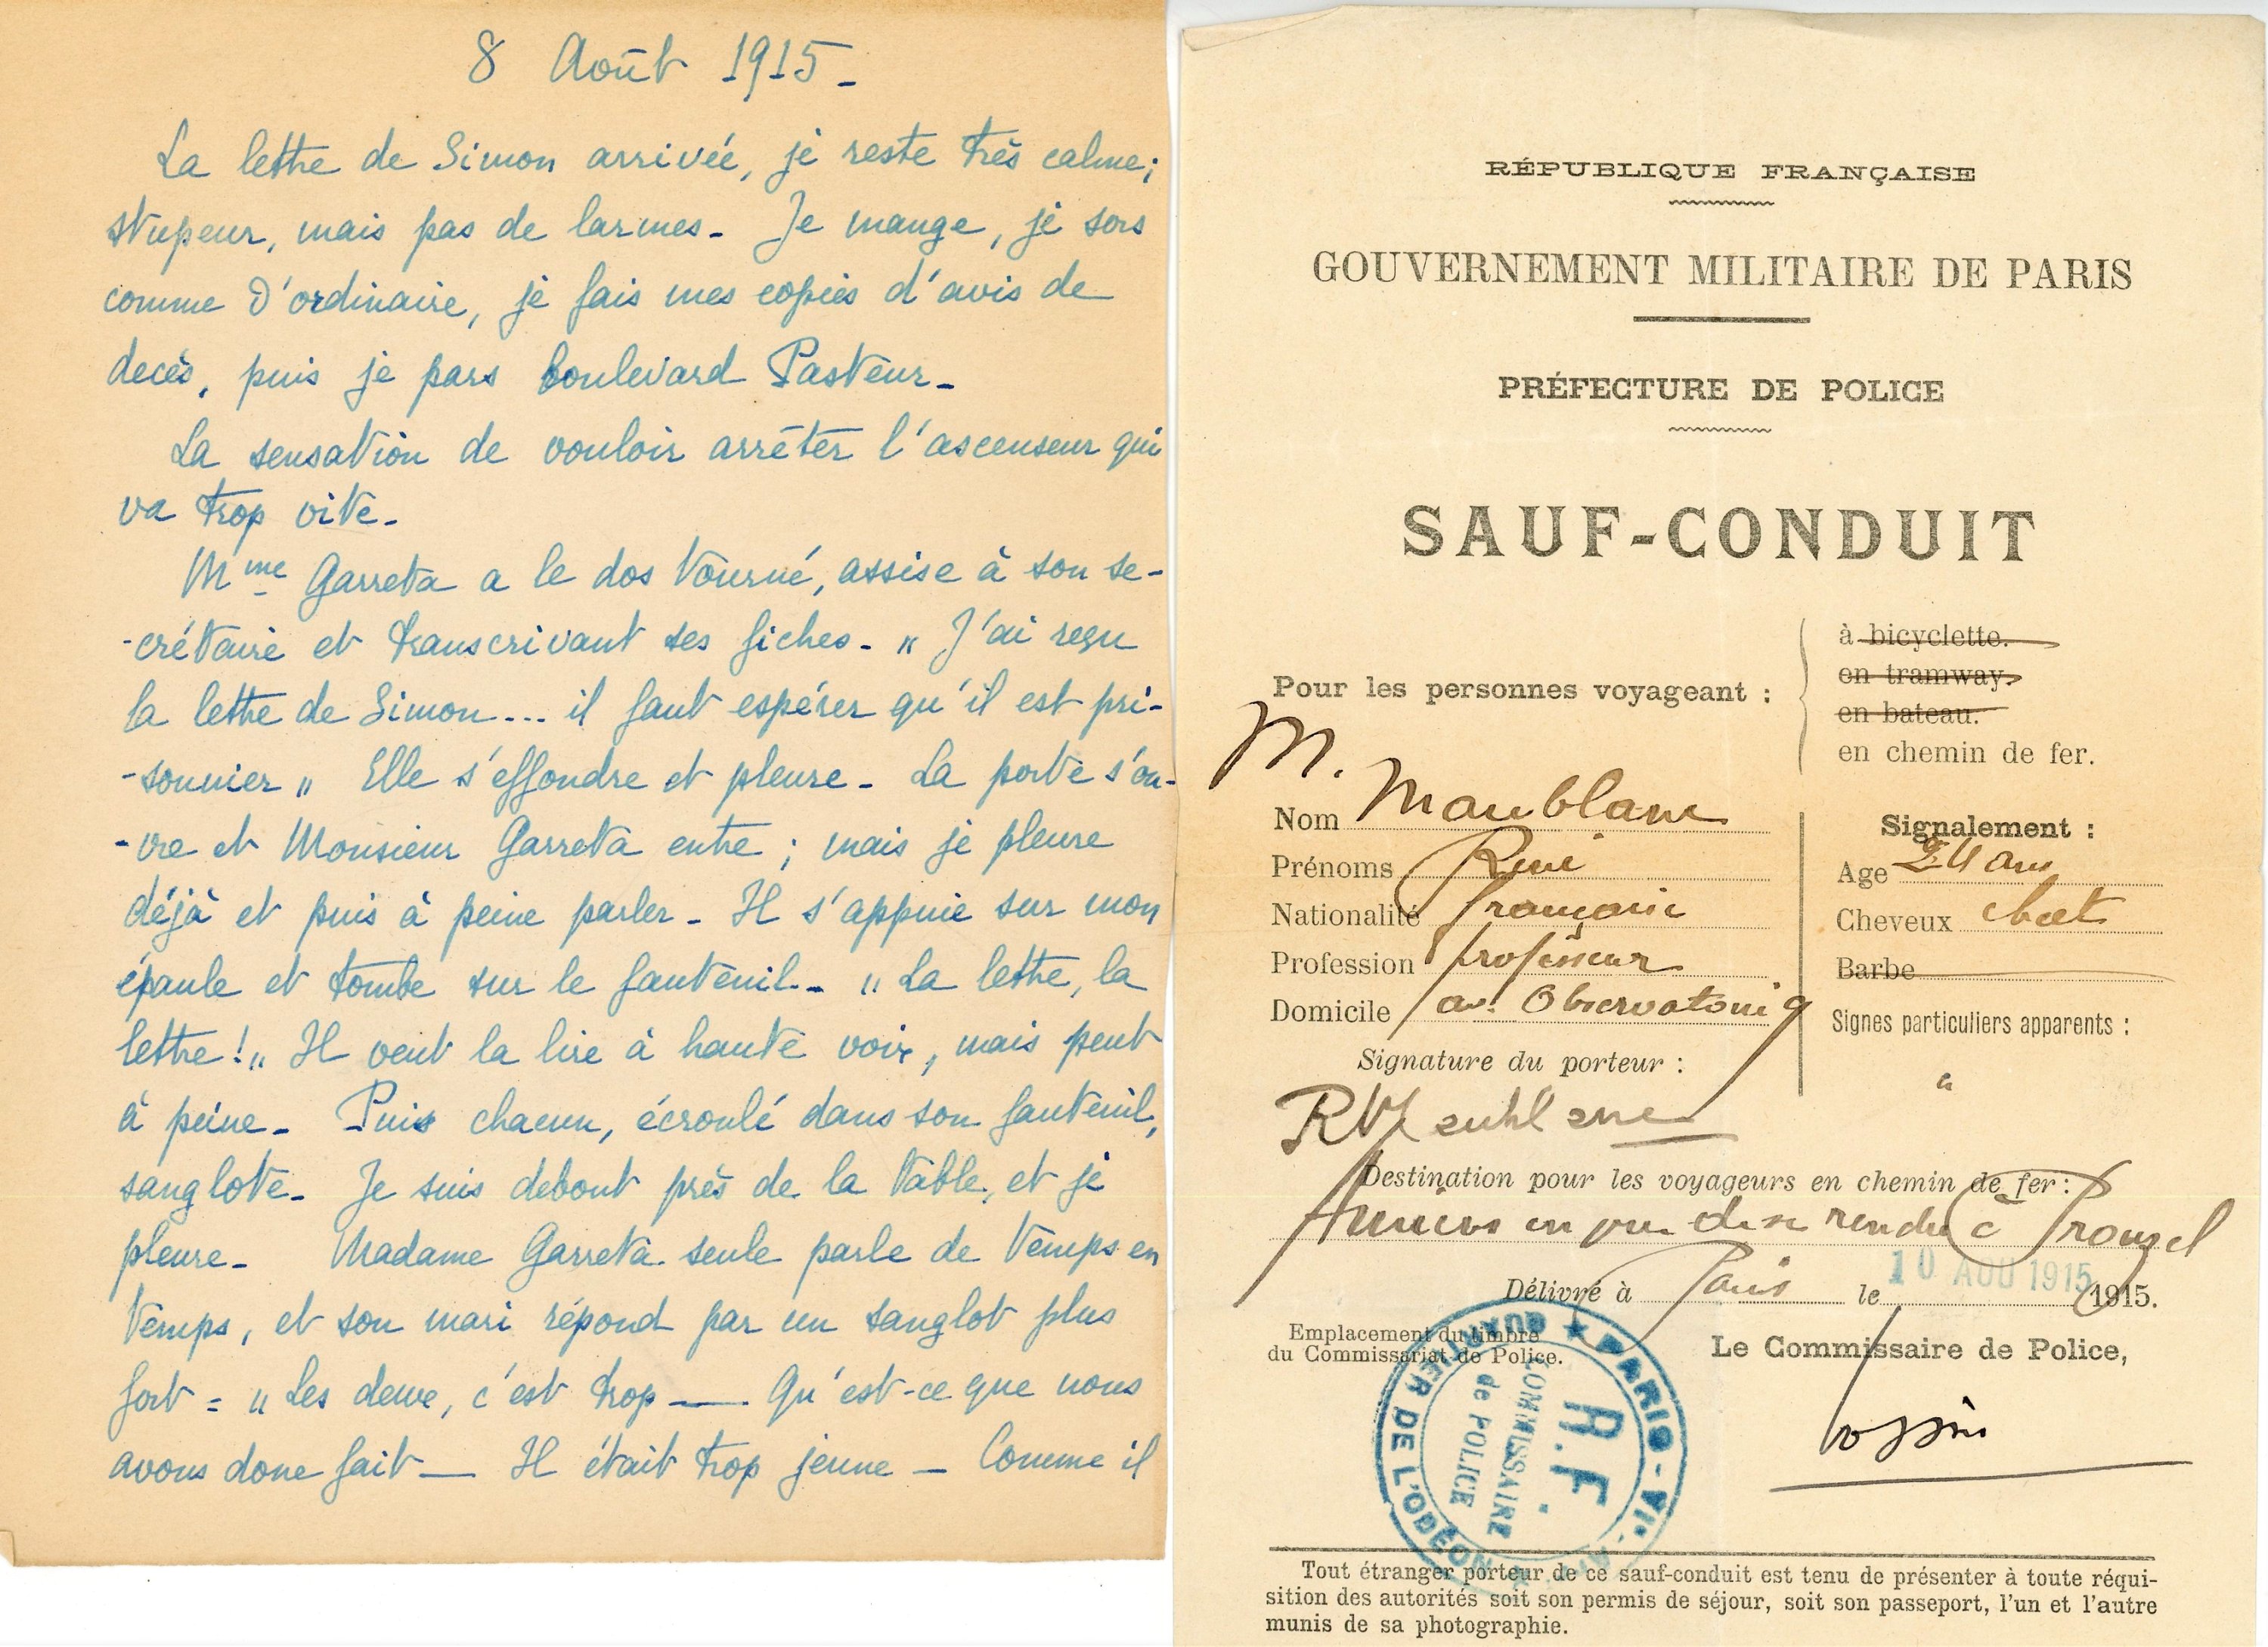 8 Août 1915 -
La lettre de Simon arrivée, je reste très calme ;
stupeur, mais pas de larmes - Je mange, je sors
comme d'ordinaire, je fais mes copies d'avis de
decès, puis je pars boulevard Pasteur -
La sensation de vouloir arrêter l'ascenseur qui
va trop vite -
Mme Garreta a le dos tourné, assise à son se-
-crétaire et transcrivant ses fiches - " J'ai reçu
la lettre de Simon ... il faut espérer qu'il est pri-
-sonnier " Elle s'effondre et pleure - La porte s'ou-
-vre et Monsieur Garreta entre ; mais je pleure
déjà et puis à peine parler - Il s'appuie sur mon
épaule et tombe sur le fauteuil - " La lettre, la
lettre ! " Il veut la lire à haute voix, mais peut
à peine - Puis chacun, écroulé dans son fauteuil,
sanglote - Je suis debout près de la table, et je
pleure - Madame Garreta seule parle de temps en
temps, et son mari répond par un sanglot plus
fort = " Les deux, c'est trop — Qu'est-ce que nous
avons donc fait — Il était trop jeune — Comme il
RÉPUBLIQUE FRANÇAISE
GOUVERNEMENT MILITAIRE DE PARIS
PRÉFECTURE DE POLICE
SAUF-CONDUIT
Pour les personnes voyageant :
à bicyclette.
en tramway.
en bateau.
en chemin de fer.
M.
Nom Maublanc
Prénoms René
Nationalité française
Profession professeur
Domicile av. Observatoire 9
Signature du porteur :
R Maublanc
Signalement :
Age 24 ans
Cheveux chat
Barbe
Signes particuliers apparents :
Destination pour les voyageurs en chemin de fer :
Amiens en vue de se rendre à Prouzel
Délivré à Paris le 10 AOU 1915 1915.
Emplacement du timbre
du Commissariat de Police.
Le Commissaire de Police,
PARIS - VIe ARRt
QUARTIER DE L'ODÉON
COMMISSAIRE
de POLICE
R.F.
Tout étranger porteur de ce sauf-conduit est tenu de présenter à toute réqui-
sition des autorités soit son permis de séjour, soit son passeport, l'un et l'autre
munis de sa photographie.